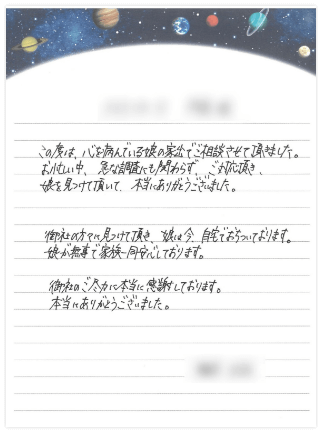 この度は、心を病んでいる娘の家出でご相談させて頂きました。
お忙しい中、急な調査にも関わらず、ご対応頂き、
娘を見つけて頂いて、本当にありがとうございました。
御社の方々に見つけて頂き、娘は今、自宅でおちついております。
娘が無事で家族一同安心しております。
御社のご尽力に本当に感謝しております。
本当にありがとうございました。